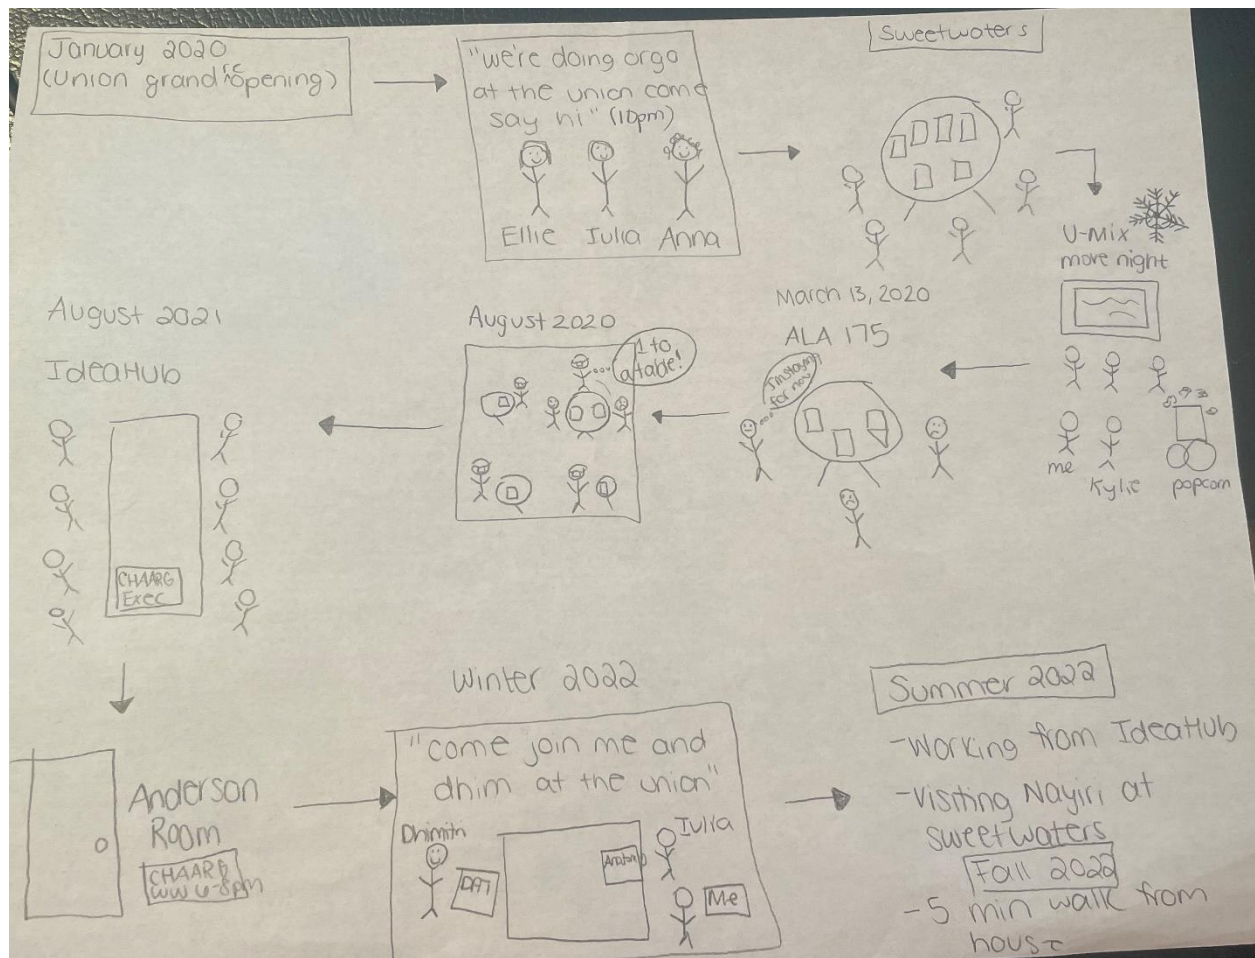 January 2020
(Union grand reopening)
"we're doing orgo
at the union come
say hi" (10pm)
Ellie Iulia Anna
Sweetwaters
U-Mix
more night
me
Kylie
popcorn
March 13, 2020
ALA 175
I'm staying
for now
August 2020
1 to
a table!
August 2021
IdeaHub
CHAARG
Exec
Anderson
Room
CHAARG
6-8pm
Winter 2022
"come join me and
dhim at the union"
Dhimitri
DAT
Anatomy
Iulia
Me
Summer 2022
-Working from IdeaHub
-Visiting Nayiri at
sweetwaters
Fall 2022
-5 min walk from
house